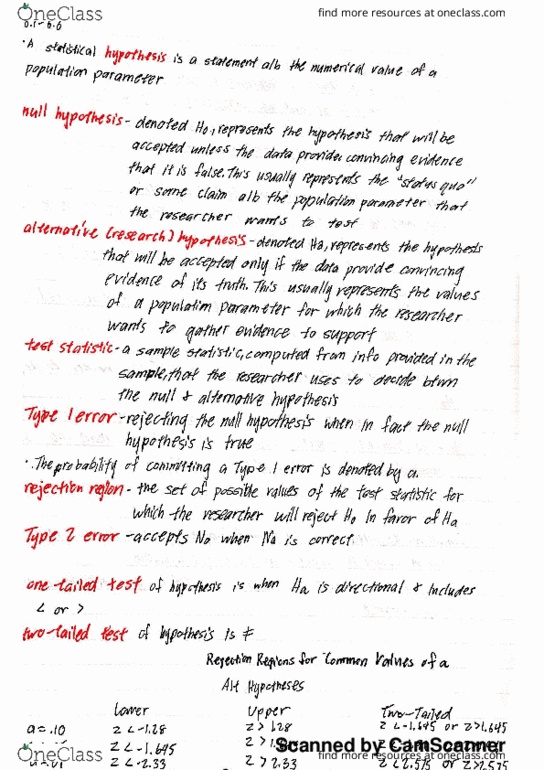 OneClass
find more resources at oneclass.com
6.1-6.6
·A statistical hypothesis is a statement alb the numerical value of a
population parameter
null hypothesis- denoted Ho, represents the hypothesis that will be
accepted unless the data provides convincing evidence
that it is false. This usually represents the "status quo"
or some claim alb the population parameter that
the researcher wants to test
alternative (research) hypothesis-denoted Ha, represents the hypothesis
that will be accepted only if the data provide convincing
evidence of its truth. This usually represents the values
of a population parameter for which the researcher
wants to gather evidence to support
test statistic-a sample statistic, computed from info provided in the
sample, that the researcher uses to decide btwn
the null & alternative hypothesis
Type 1 error-rejecting the null hypothesis when in fact the null
hypothesis is true
·.The probability of committing a Type 1 error is denoted by a.
rejection region- the set of possible values of the test statistic for
which the researcher will reject Ho in favor of Ha
Type 2 error-accepts No when Na is correct
one-tailed test of hypothesis is when Ha is directional & includes
< or >
two-tailed test of hypothesis is ≠
Rejection Regions for Common Values of a
Alt Hypotheses
Lower Upper Two-Tailed
a=.10 z<-1.28 z>1.28 z<-1.645 or z>1.645
z<-1.645
z<-2.33 z>2.33 z<2.575 z>2.575
Scanned by CamScanner
OneClass
find more resources at oneclass.com